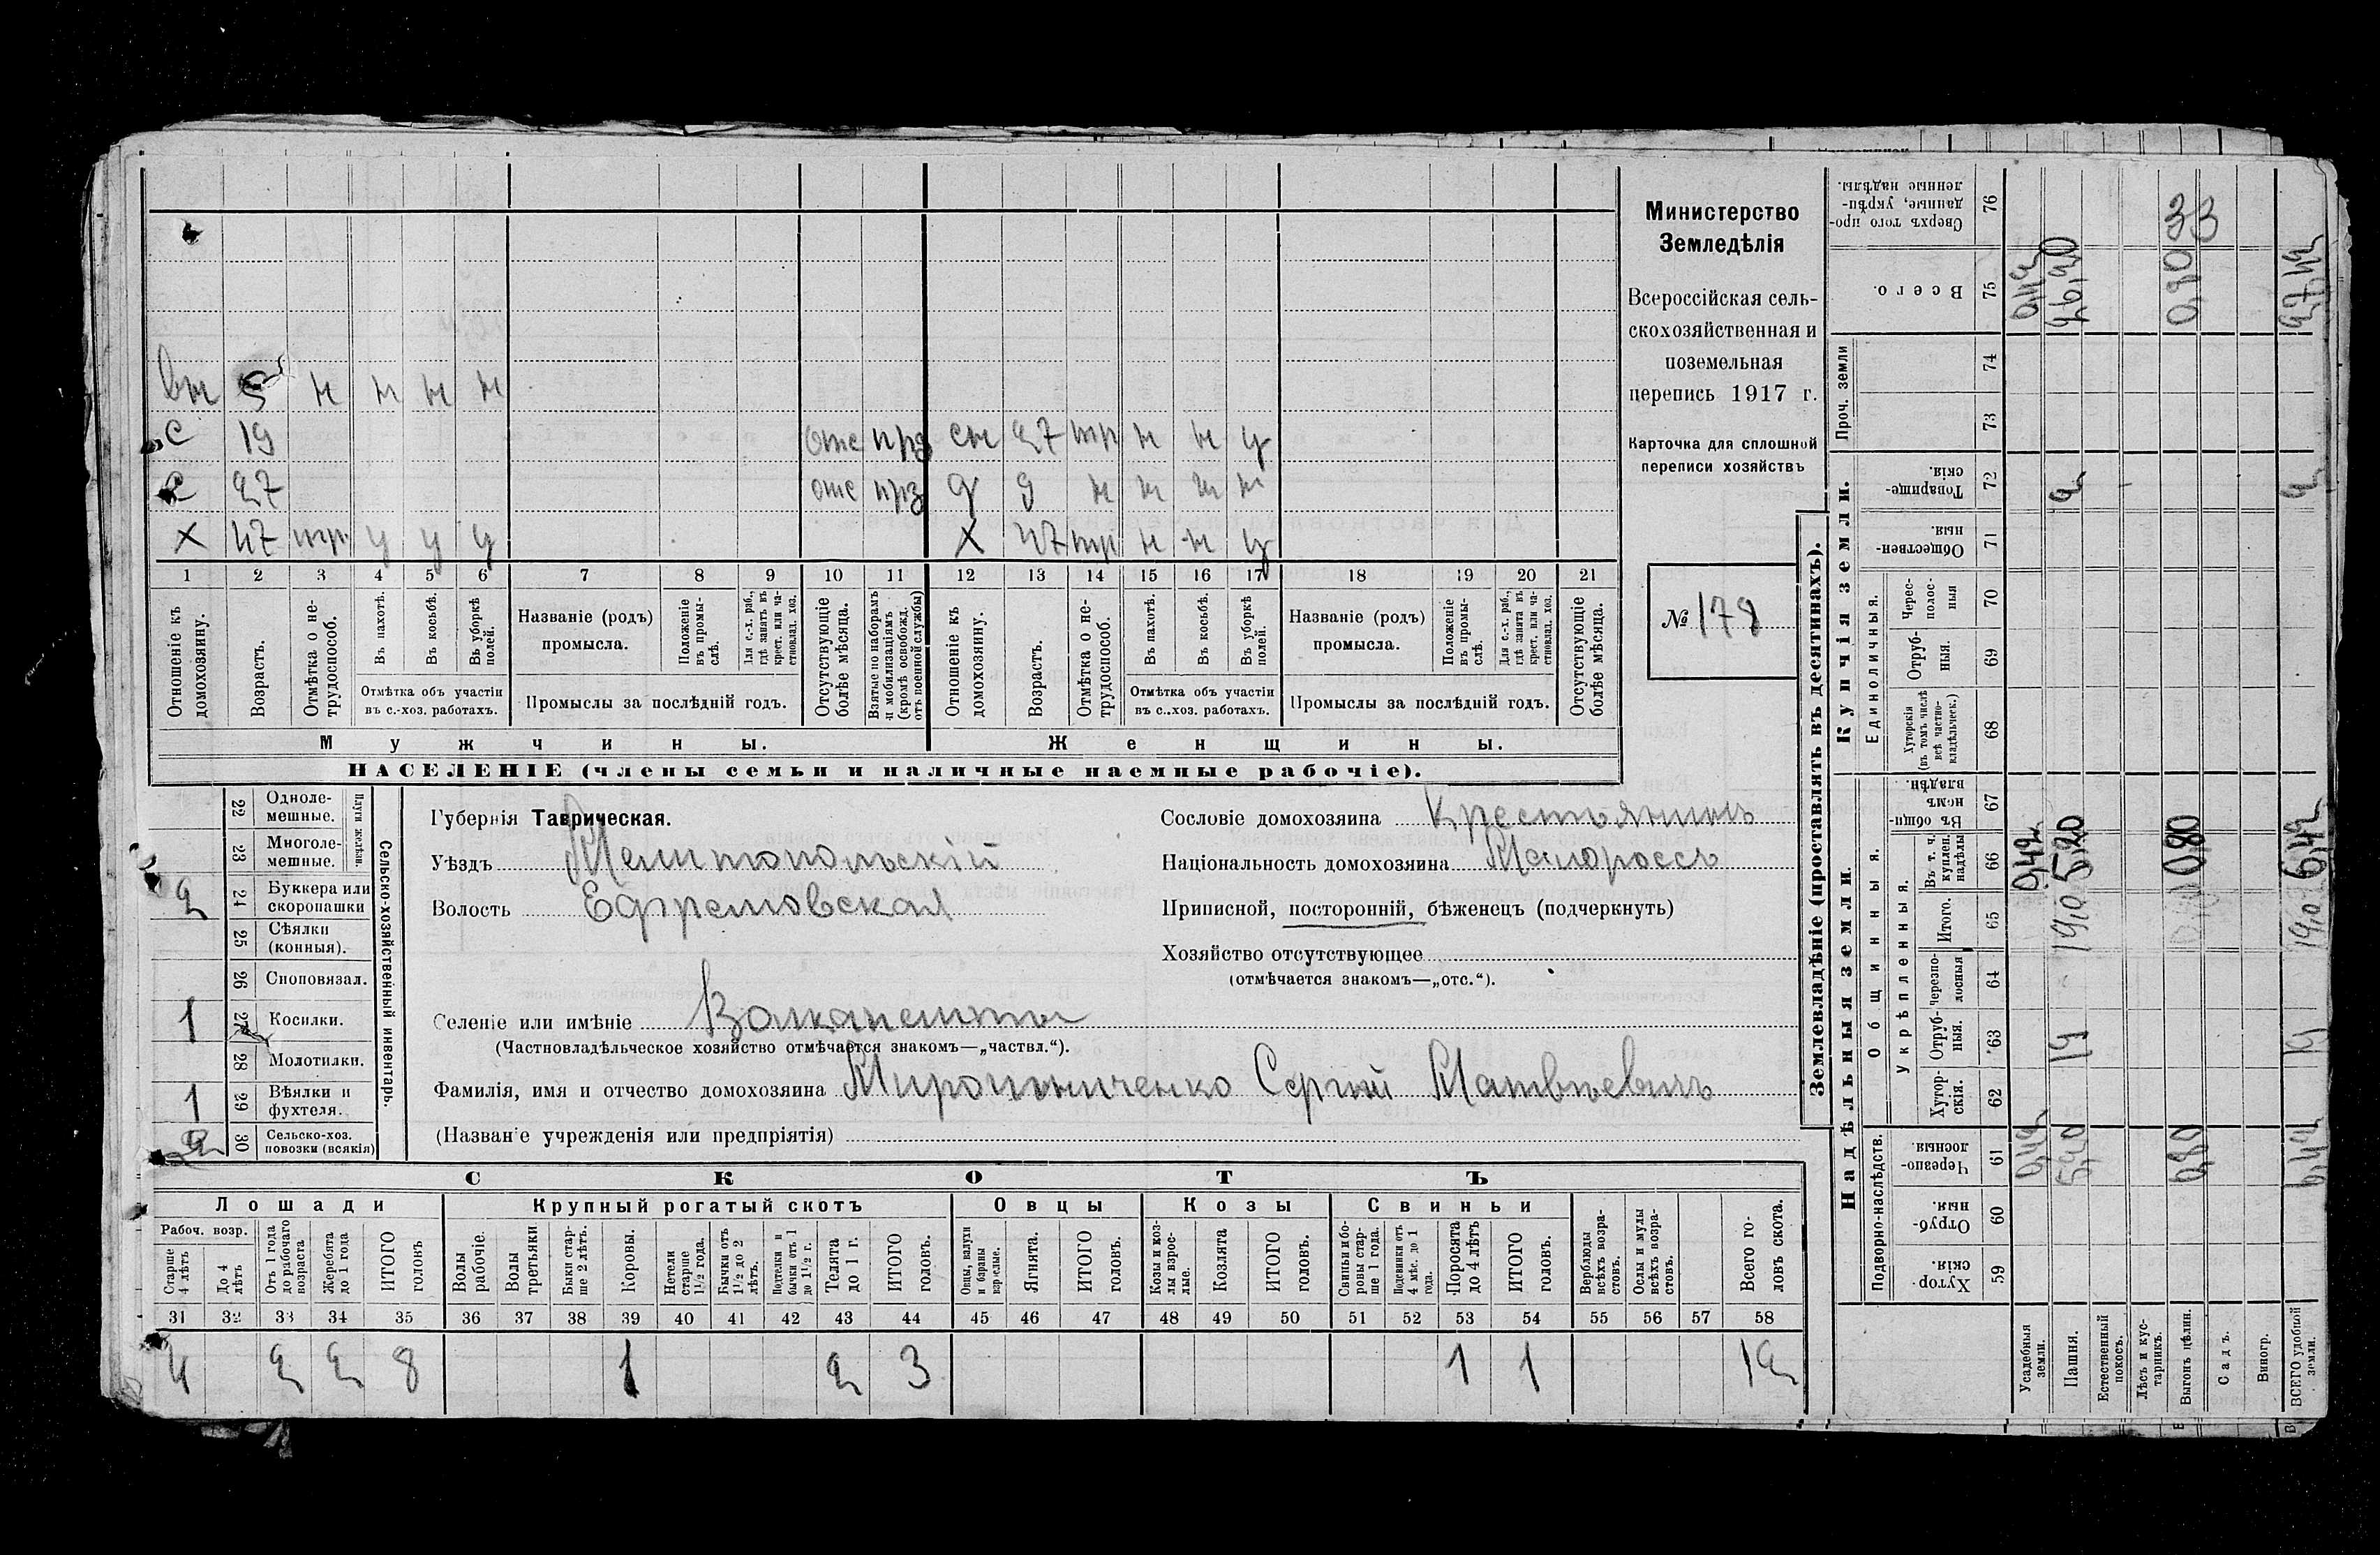 вн 5 н н н н
с 19 отс прз сн 27 тр н н у
с 27 отс прз д 9 н н н н
х 47 тр. у у у х 47 тр н н у
1 2 3 4 5 6 7 8 9 10 11 12 13 14 15 16 17 18 19 20 21
Отношеніе къ домохозяину.
Возрастъ.
Отмѣтка о не-
трудоспособ.
Въ пахотѣ.
Въ косьбѣ.
Въ уборкѣ
полей.
Отмѣтка объ участіи
въ с.-хоз. работахъ.
Названіе (родъ)
промысла.
Положеніе
въ промы-
слѣ.
Для с.-х. раб.,
гдѣ занятъ въ
крест. или ча-
стновлад. хоз.
Промыслы за послѣдній годъ.
Отсутствующіе
болѣе мѣсяца.
Взятые по наборамъ
и мобилизаціямъ
(кромѣ освобожд.
отъ военной службы)
Отношеніе къ
домохозяину.
Возрастъ.
Отмѣтка о не-
трудоспособ.
Въ пахотѣ.
Въ косьбѣ.
Въ уборкѣ
полей.
Отмѣтка объ участіи
въ с.-хоз. работахъ.
Названіе (родъ)
промысла.
Положеніе
въ промы-
слѣ.
Для с.-х. раб.,
гдѣ занята въ
крест. или ча-
стновлад. хоз.
Промыслы за послѣдній годъ.
Отсутствующіе
болѣе мѣсяца.
Мужчины. Женщины.
НАСЕЛЕНІЕ (члены семьи и наличные наемные рабочіе).
Министерство
Земледѣлія
Всероссійская сель-
скохозяйственная и
поземельная
перепись 1917 г.
Карточка для сплошной
переписи хозяйствъ
№ 178
22 Одноле-
мешные.
23 Многоле-
мешные.
Плуги желѣзн.
2 24 Буккера или
скоропашки
25 Сѣялки
(конныя).
26 Сноповязал.
1 27 Косилки.
28 Молотилки.
1 29 Вѣялки и
фухтеля.
2 30 Сельско-хоз.
повозки (всякія)
Сельско-хозяйственный инвентарь.
Губернія Таврическая.
Уѣздъ Мелитопольскій
Волость Ефремовская
Сословіе домохозяина Крестьянинъ
Національность домохозяина Малороссъ
Приписной, посторонній, бѣженецъ (подчеркнуть)
Хозяйство отсутствующее
(отмѣчается знакомъ—„отс.“).
Селеніе или имѣніе Волканешты
(Частновладѣльческое хозяйство отмѣчается знакомъ—„частвл.“).
Фамилія, имя и отчество домохозяина Мирошниченко Сергій Матвѣевичъ
(Названіе учрежденія или предпріятія)
СКОТЪ
Лошади Крупный рогатый скотъ Овцы Козы Свиньи
Рабоч. возр.
Старше
4 лѣтъ
До 4
лѣтъ
Отъ 1 года
до рабочаго
возраста
Жеребята
до 1 года
ИТОГО
головъ
Волы
рабочіе.
Волы
третьяки
Быки стар-
ше 2 лѣтъ.
Коровы.
Нетели
старше
1½ года.
Бычки отъ
1½ до 2
лѣтъ.
Подтелки и
бычки отъ 1
до 1½ г.
Телята
до 1 г.
ИТОГО
головъ.
Овцы, валухи
и бараны
взрослые.
Ягнята.
ИТОГО
головъ.
Козы и коз-
лы взрос-
лые.
Козлята
ИТОГО
головъ.
Свиньи и бо-
ровы стар-
ше 1 года.
Подсвинки отъ
4 мѣс. до 1
года.
Поросята
до 4 лѣтъ
ИТОГО
головъ.
Верблюды
всѣхъ возра-
стовъ.
Ослы и мулы
всѣхъ возра-
стовъ.
Всего го-
ловъ скота.
31 32 33 34 35 36 37 38 39 40 41 42 43 44 45 46 47 48 49 50 51 52 53 54 55 56 57 58
4 2 2 8 1 2 3 1 1 12
Землевладѣніе (проставлять въ десятинахъ).
Надѣльныя земли. Купчія земли. Проч. земли
Подворно-наслѣдств.
Общинныя.
Укрѣпленныя.
Единоличныя.
Сверхъ того про-
данные, укрѣп-
ленные надѣлы.
76 33
Всего.
75 0,42 26,20 0,80 27,42
74
73
Товарище-
скія.
72 2 2
Обществен-
ныя.
71
Черес-
полос-
ныя
70
Отруб-
ныя.
69
Хуторскія
(въ томъ числѣ
всѣ частно-
владѣльческ.)
68
Въ общи-
номъ
владѣн.
67
Въ т. ч.
куплен.
надѣлы
66 0,42 5,20 0,80 6,42
Итого.
65 19,0 19,0
Черезпо-
лосныя
64
Отруб-
ныя.
63 19 19
Хутор-
скія.
62
Черезпо-
лосныя
61 0,42 5,20 0,80 6,42
Отруб-
ныя.
60
Хутор-
скія.
59
Усадебныя
земли.
Пашня.
Естественный
покосъ.
Лѣсъ и кус-
тарникъ.
Выгонъ цѣлин.
Садъ.
Виногр.
ВСЕГО удобной
земли.